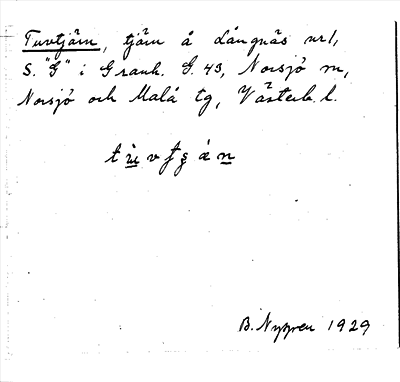 Tuvtjärn, tjärn å Långnäs nr1,
S. "G" i Granh. G. 43, Norsjö sn,
Norsjö och Malå tg, Västerb. l.
B. Nygren 1929